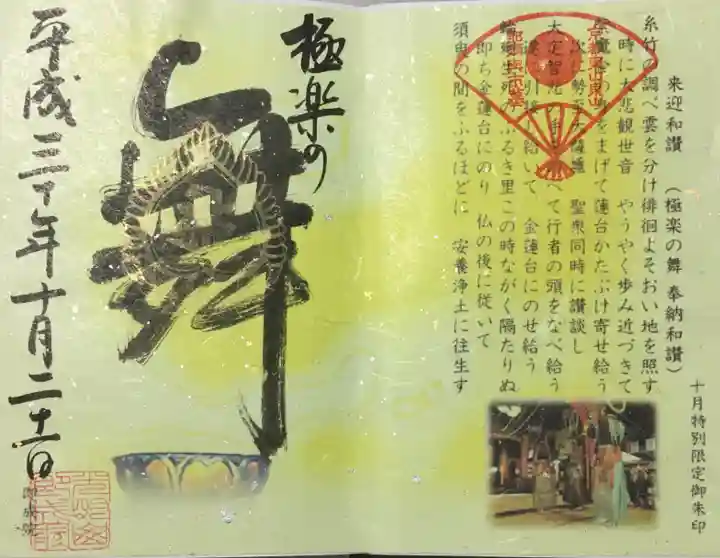 来迎和讃 (極楽の舞 奉納和讃)
糸竹の調べ雲を分け徘徊よそおい地を照す
時に大悲観世音 やうやく歩み近づきて
の をまげて蓮台かたぶけ寄せ給う
次に勢至 聖衆同時に讃談し
大定智悲の手 べて行者の頭をなべ給う
引 給いて、 金蓮台にのせ給う
輪廻生死のふるき里この時ながく隔たりぬ
即ち金蓮台にのり 仏の後に従いて
須臾の間をふるほどに 安養浄土に往生す
十月特別限定御朱印
極楽の
舞
平成三十年十月二十一日